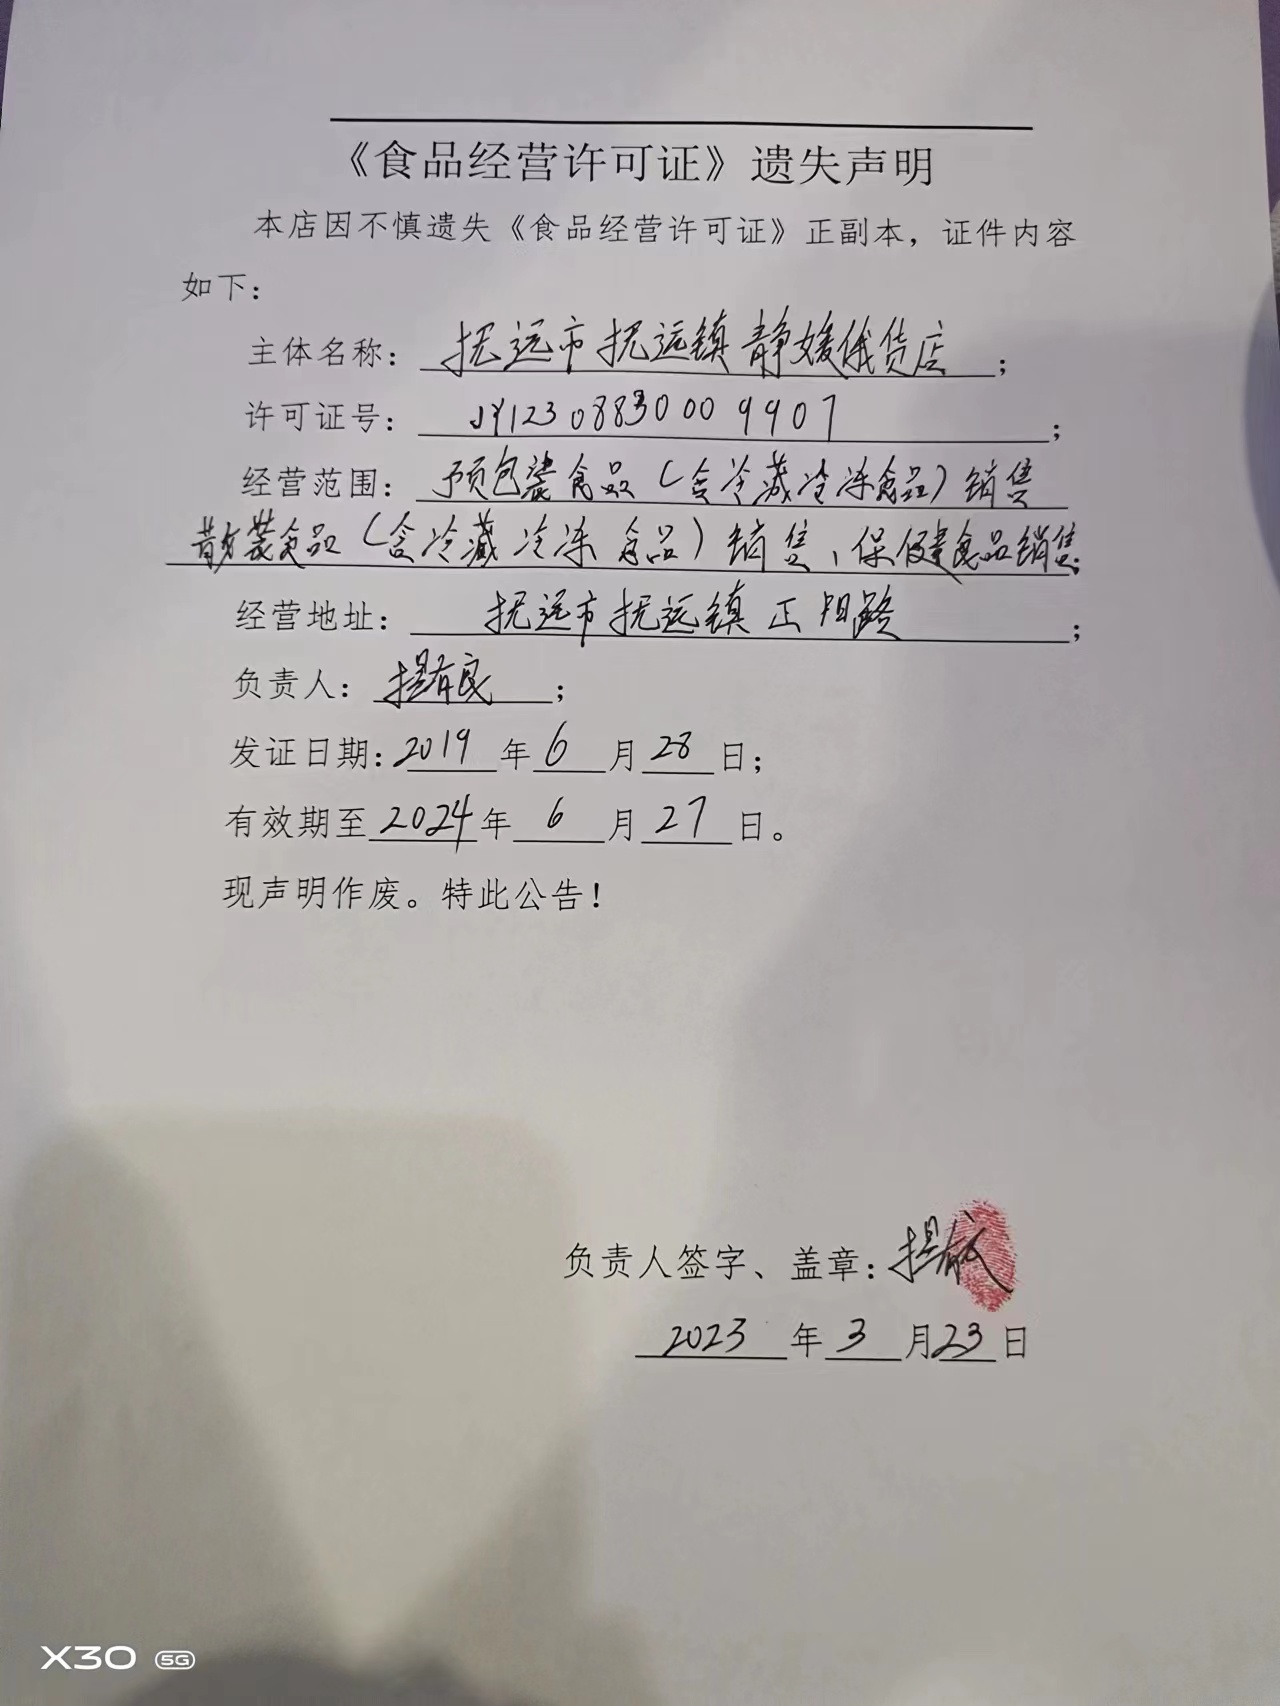 《食品经营许可证》遗失声明
本店因不慎遗失《食品经营许可证》正副本，证件内容
如下：
主体名称：抚远市抚远镇静媛俄货店；
许可证号：JY12308830009907；
经营范围：预包装食品（含冷藏冷冻食品）销售
散装食品（含冷藏冷冻食品）销售、保健食品销售；
经营地址：抚远市抚远镇正阳路；
负责人：提有良；
发证日期：2019年6月28日；
有效期至2024年6月27日。
现声明作废。特此公告！
负责人签字、盖章：提有良
2023年3月23日
X30 5G